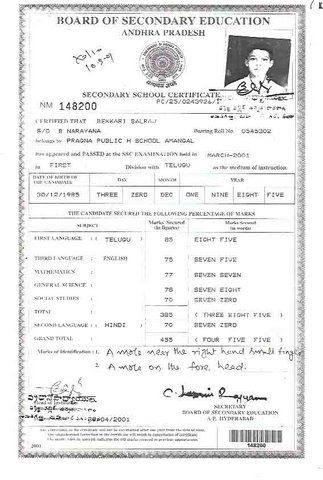 BOARD OF SECONDARY EDUCATION
ANDHRA PRADESH
SECONDARY SCHOOL CERTIFICATE
PC/25/0243926/
NM 148200
CERTIFIED THAT BEKKARI BALRAJ
S/O B NARAYANA Bearing Roll No 0545302
belongs to PRAGNA PUBLIC H SCHOOL AMANGAL
has appeared and PASSED at the SSC EXAMINATION held in MARCH-2001
in FIRST Division with TELUGU as the medium of instruction.
DATE OF BIRTH OF THE CANDIDATE DAY MONTH YEAR
30/12/1985 THREE ZERO DEC ONE NINE EIGHT FIVE
THE CANDIDATE SECURED THE FOLLOWING PERCENTAGE OF MARKS
SUBJECT Marks Secured (in figures) Marks Secured (in words)
FIRST LANGUAGE ( TELUGU ) 85 EIGHT FIVE
THIRD LANGUAGE ENGLISH 75 SEVEN FIVE
MATHEMATICS 77 SEVEN SEVEN
GENERAL SCIENCE 78 SEVEN EIGHT
SOCIAL STUDIES 70 SEVEN ZERO
TOTAL 385 ( THREE EIGHT FIVE )
SECOND LANGUAGE ( HINDI ) 70 SEVEN ZERO
GRAND TOTAL 455 ( FOUR FIVE FIVE )
Marks of Identification : 1. A mole near the right hand small finger
2. A mole on the fore head.
SECRETARY
BOARD OF SECONDARY EDUCATION
A.P. HYDERABAD
/04/2001
2001
148200